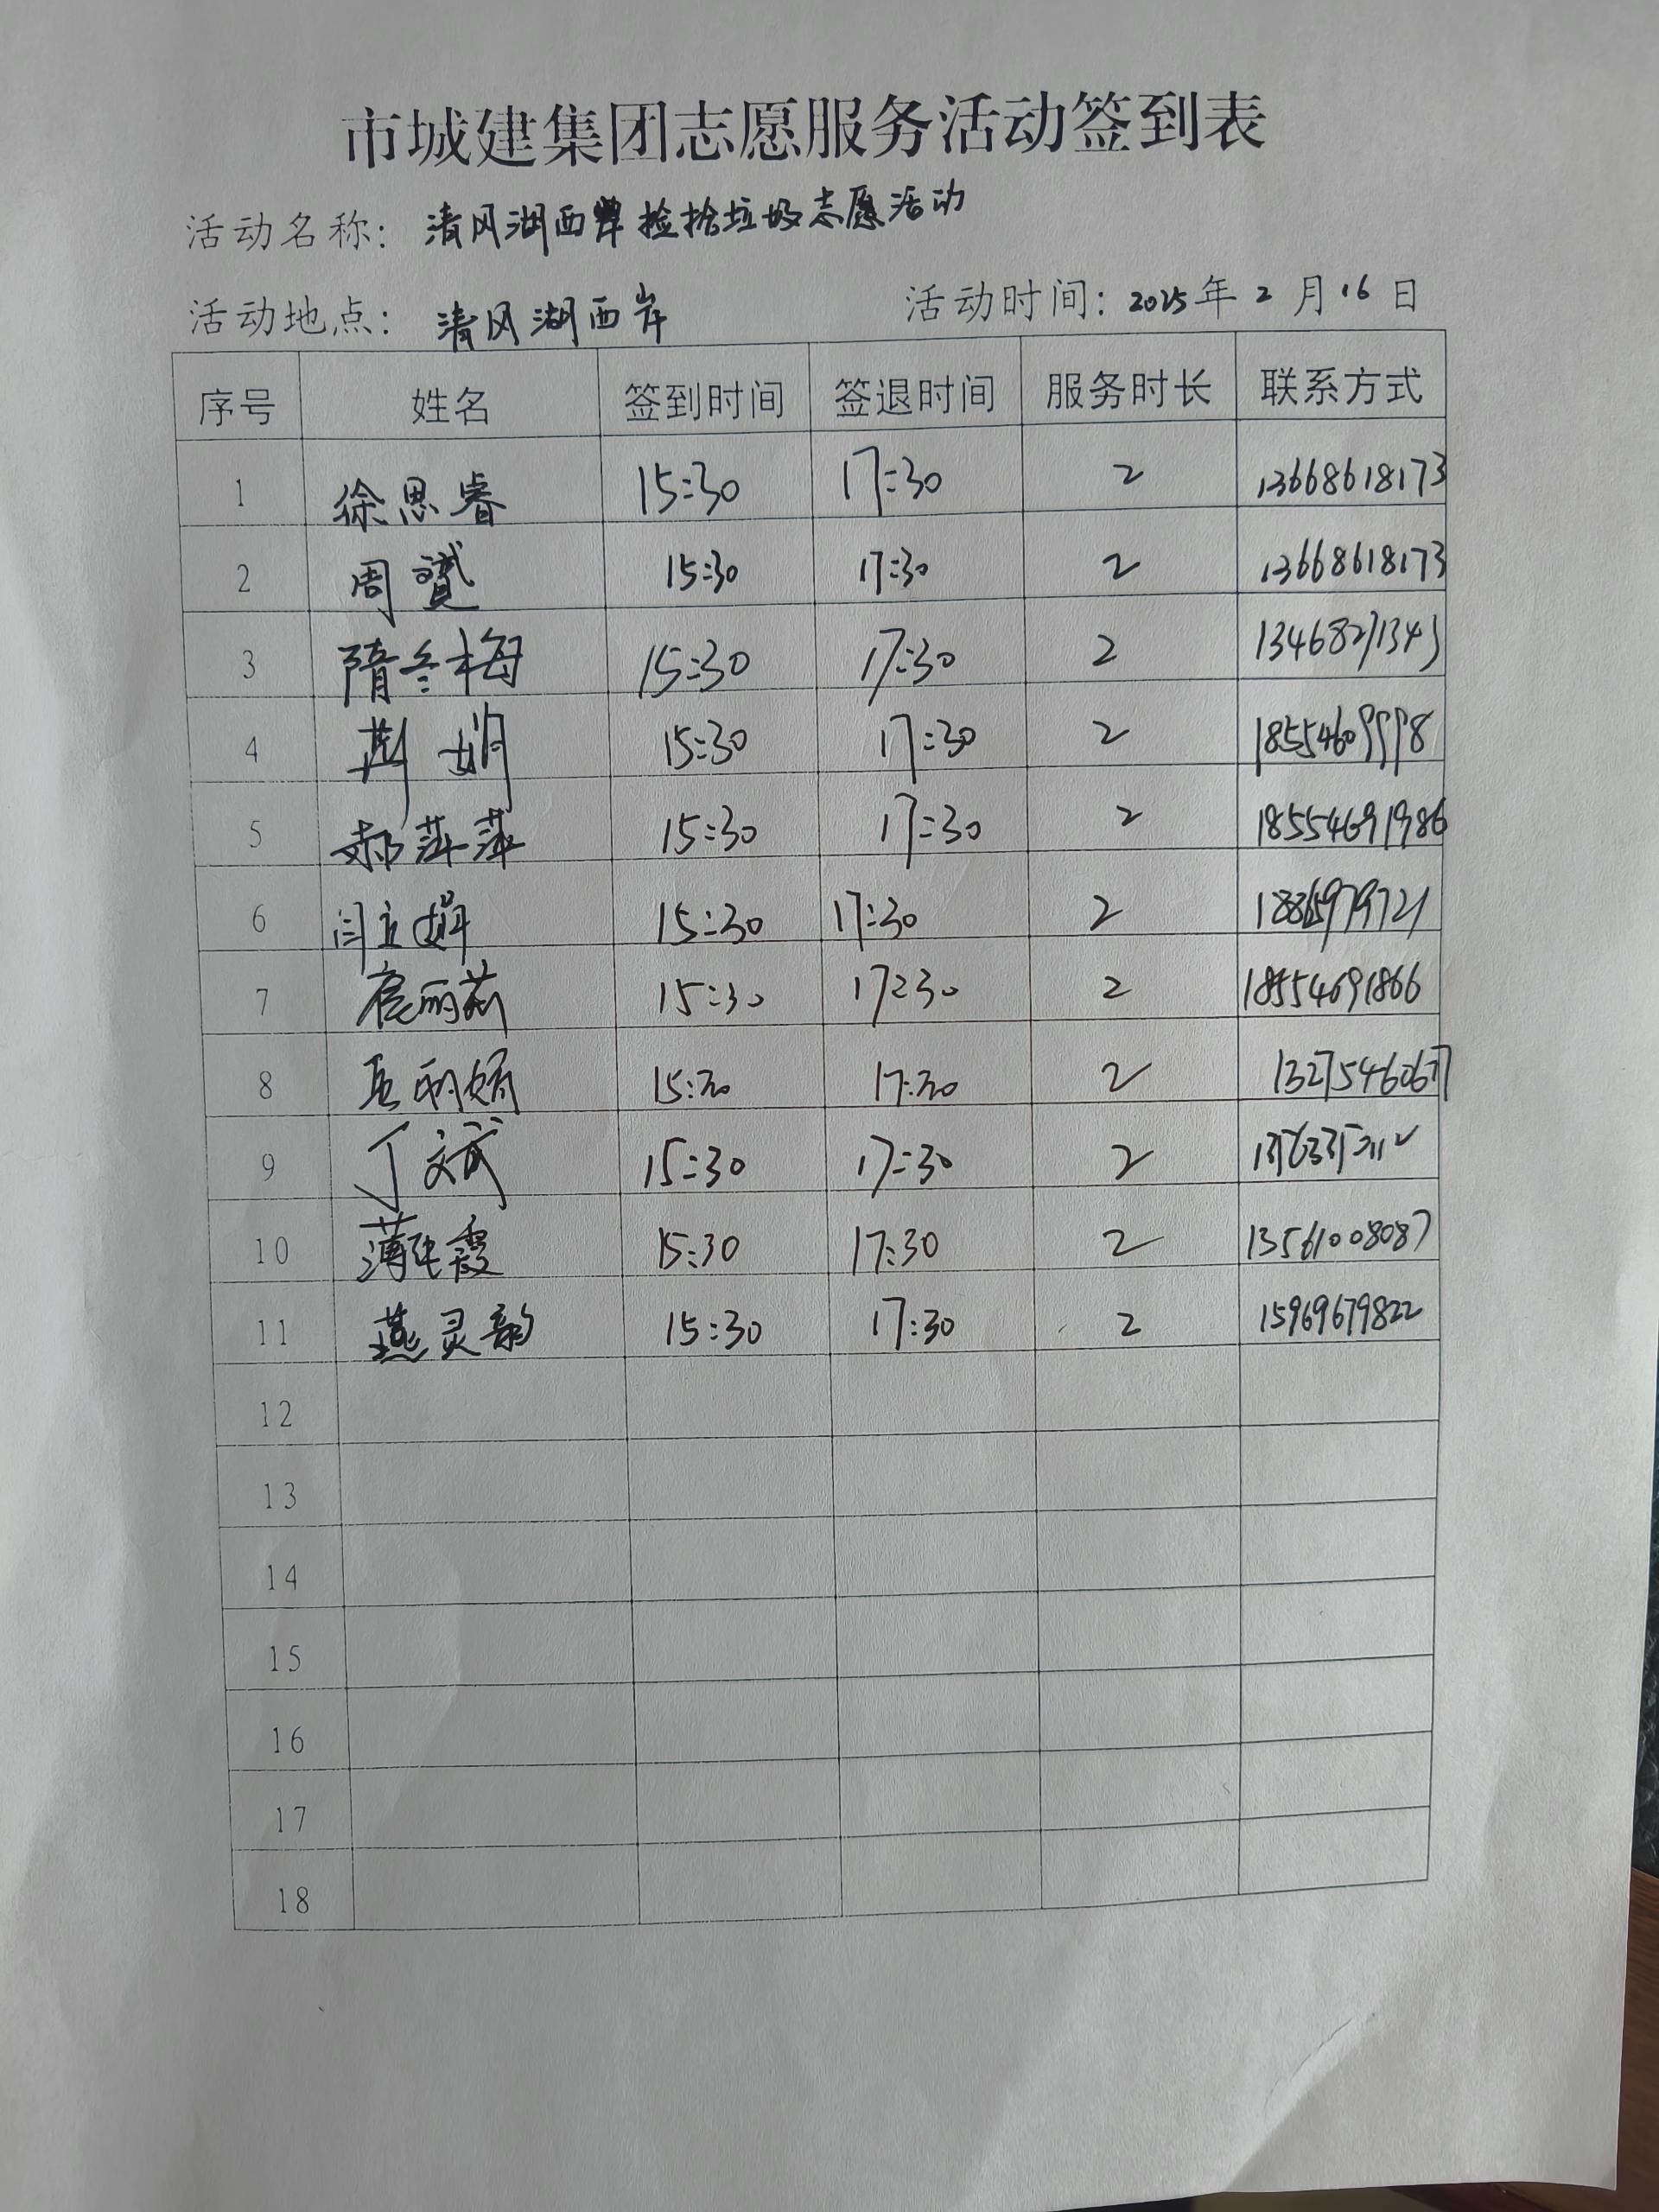 市城建集团志愿服务活动签到表
活动名称: 清风湖西岸捡拾垃圾志愿活动
活动地点: 清风湖西岸 活动时间: 2025年2月16日
序号 姓名 签到时间 签退时间 服务时长 联系方式
1 徐思睿 15:30 17:30 2 13668618173
2 周赟 15:30 17:30 2 13668618173
3 隋冬梅 15:30 17:30 2 13468271345
4 荆娟 15:30 17:30 2 18554609998
5 郝萍萍 15:30 17:30 2 18554691986
6 闫立娟 15:30 17:30 2
7 扈丽莉 15:30 17:30 2 18554691866
8 15:30 17:30 2
9 丁文斌 15:30 17:30 2
10 15:30 17:30 2 13561008087
11 燕灵韵 15:30 17:30 2 15969679822
12
13
14
15
16
17
18